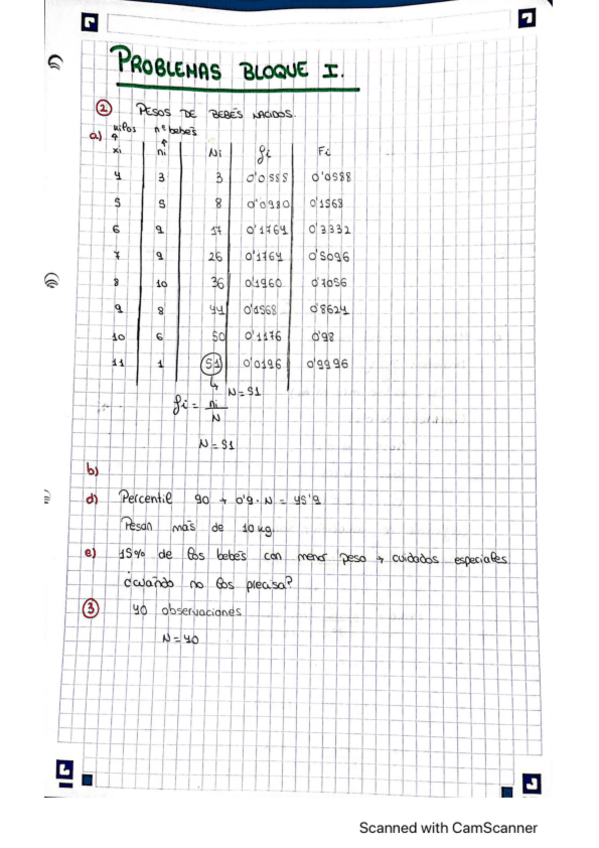 PROBLEMAS BLOQUE I.
② PESOS DE BEBÉS NACIDOS.
a) kilos nº bebés
xi ni Ni fi Fi
4 3 3 0'0588 0'0588
5 5 8 0'0980 0'1568
6 9 17 0'1764 0'3332
7 9 26 0'1764 0'5096
8 10 36 0'1960 0'7056
9 8 44 0'1568 0'8624
10 6 50 0'1176 0'98
11 1 51 0'0196 0'9996
N=51
fi = ni / N
N=51
b)
d) Percentil 90 → 0'9·N = 45'9
Pesan más de 10 kg.
e) 15% de los bebés con menor peso → cuidados especiales
¿cuándo no los precisa?
③ 40 observaciones
N=40
Scanned with CamScanner